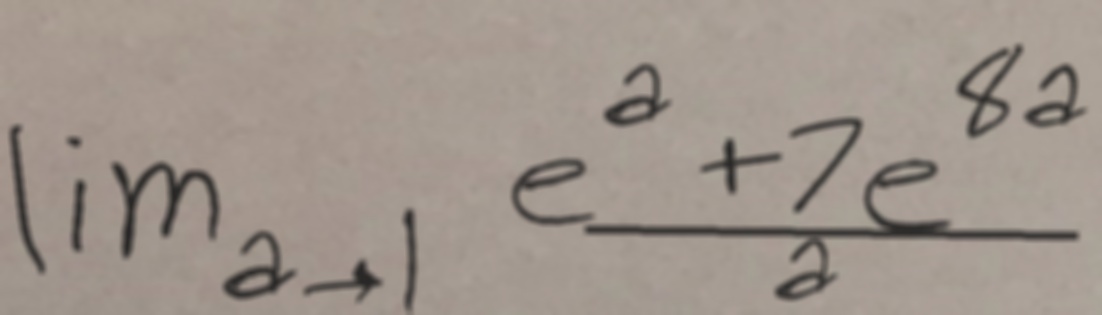 \lim_{a \to 1} \frac{e^{a} + 7e^{8a}}{a}